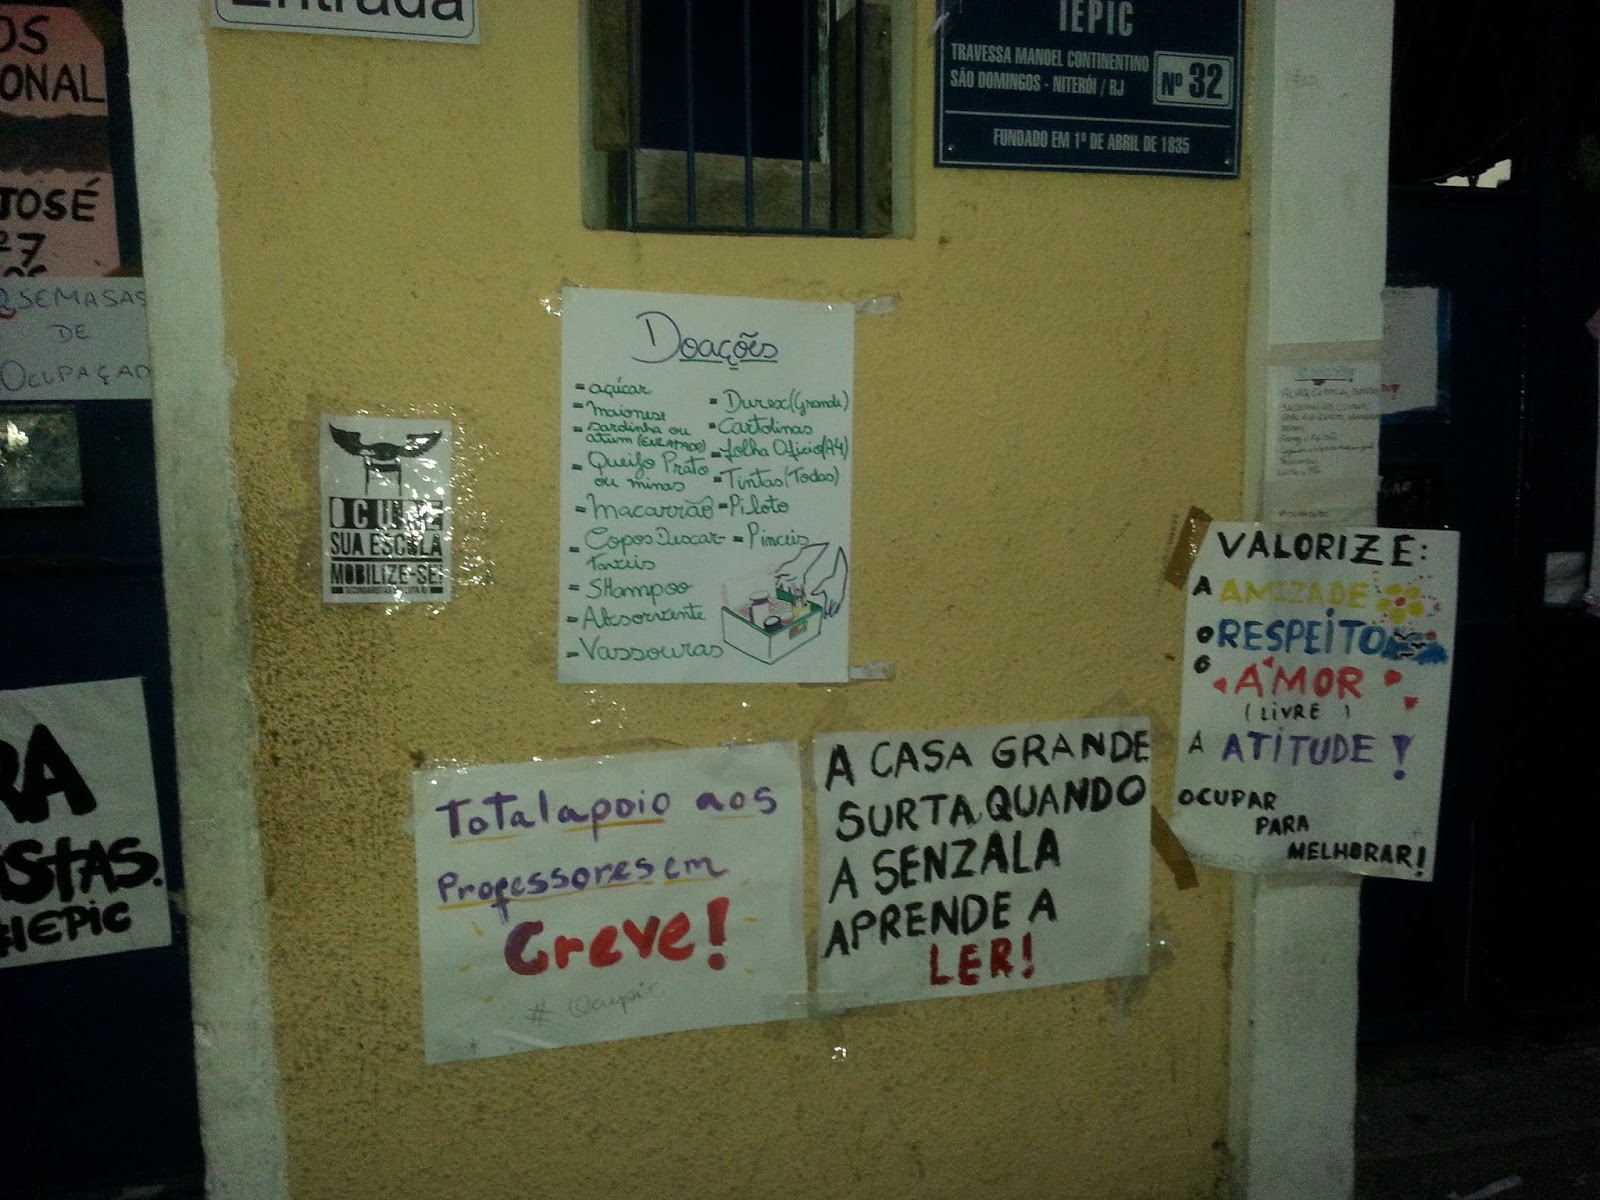 Entrada
IEPIC
TRAVESSA MANOEL CONTINENTINO
SÃO DOMINGOS - NITERÓI / RJ
Nº 32
FUNDADO EM 1º DE ABRIL DE 1835
OS
ONAL
JOSÉ
7
2 SEMASAS
DE
OCUPAÇAO
RA
ISTAS.
#IEPIC
OCUPE
SUA ESCOLA
MOBILIZE-SE!
Doações
- açúcar
- maionese
- sardinha ou
atum (ENLATADO)
- Queijo Prato
ou minas
- Macarrão
- Copos Descar-
taveis
- Shampoo
- Absorvente
- Vassouras
- Durex (Grande)
- Cartolinas
- folha Oficio (A4)
- Tintas (Todas)
- Piloto
- Pinceis
Total apoio aos
Professores em
Greve!
# Ocupic
A CASA GRANDE
SURTA, QUANDO
A SENZALA
APRENDE A
LER!
VALORIZE:
A AMIZADE
O RESPEITO
O AMOR
(LIVRE)
A ATITUDE!
OCUPAR
PARA
MELHORAR!